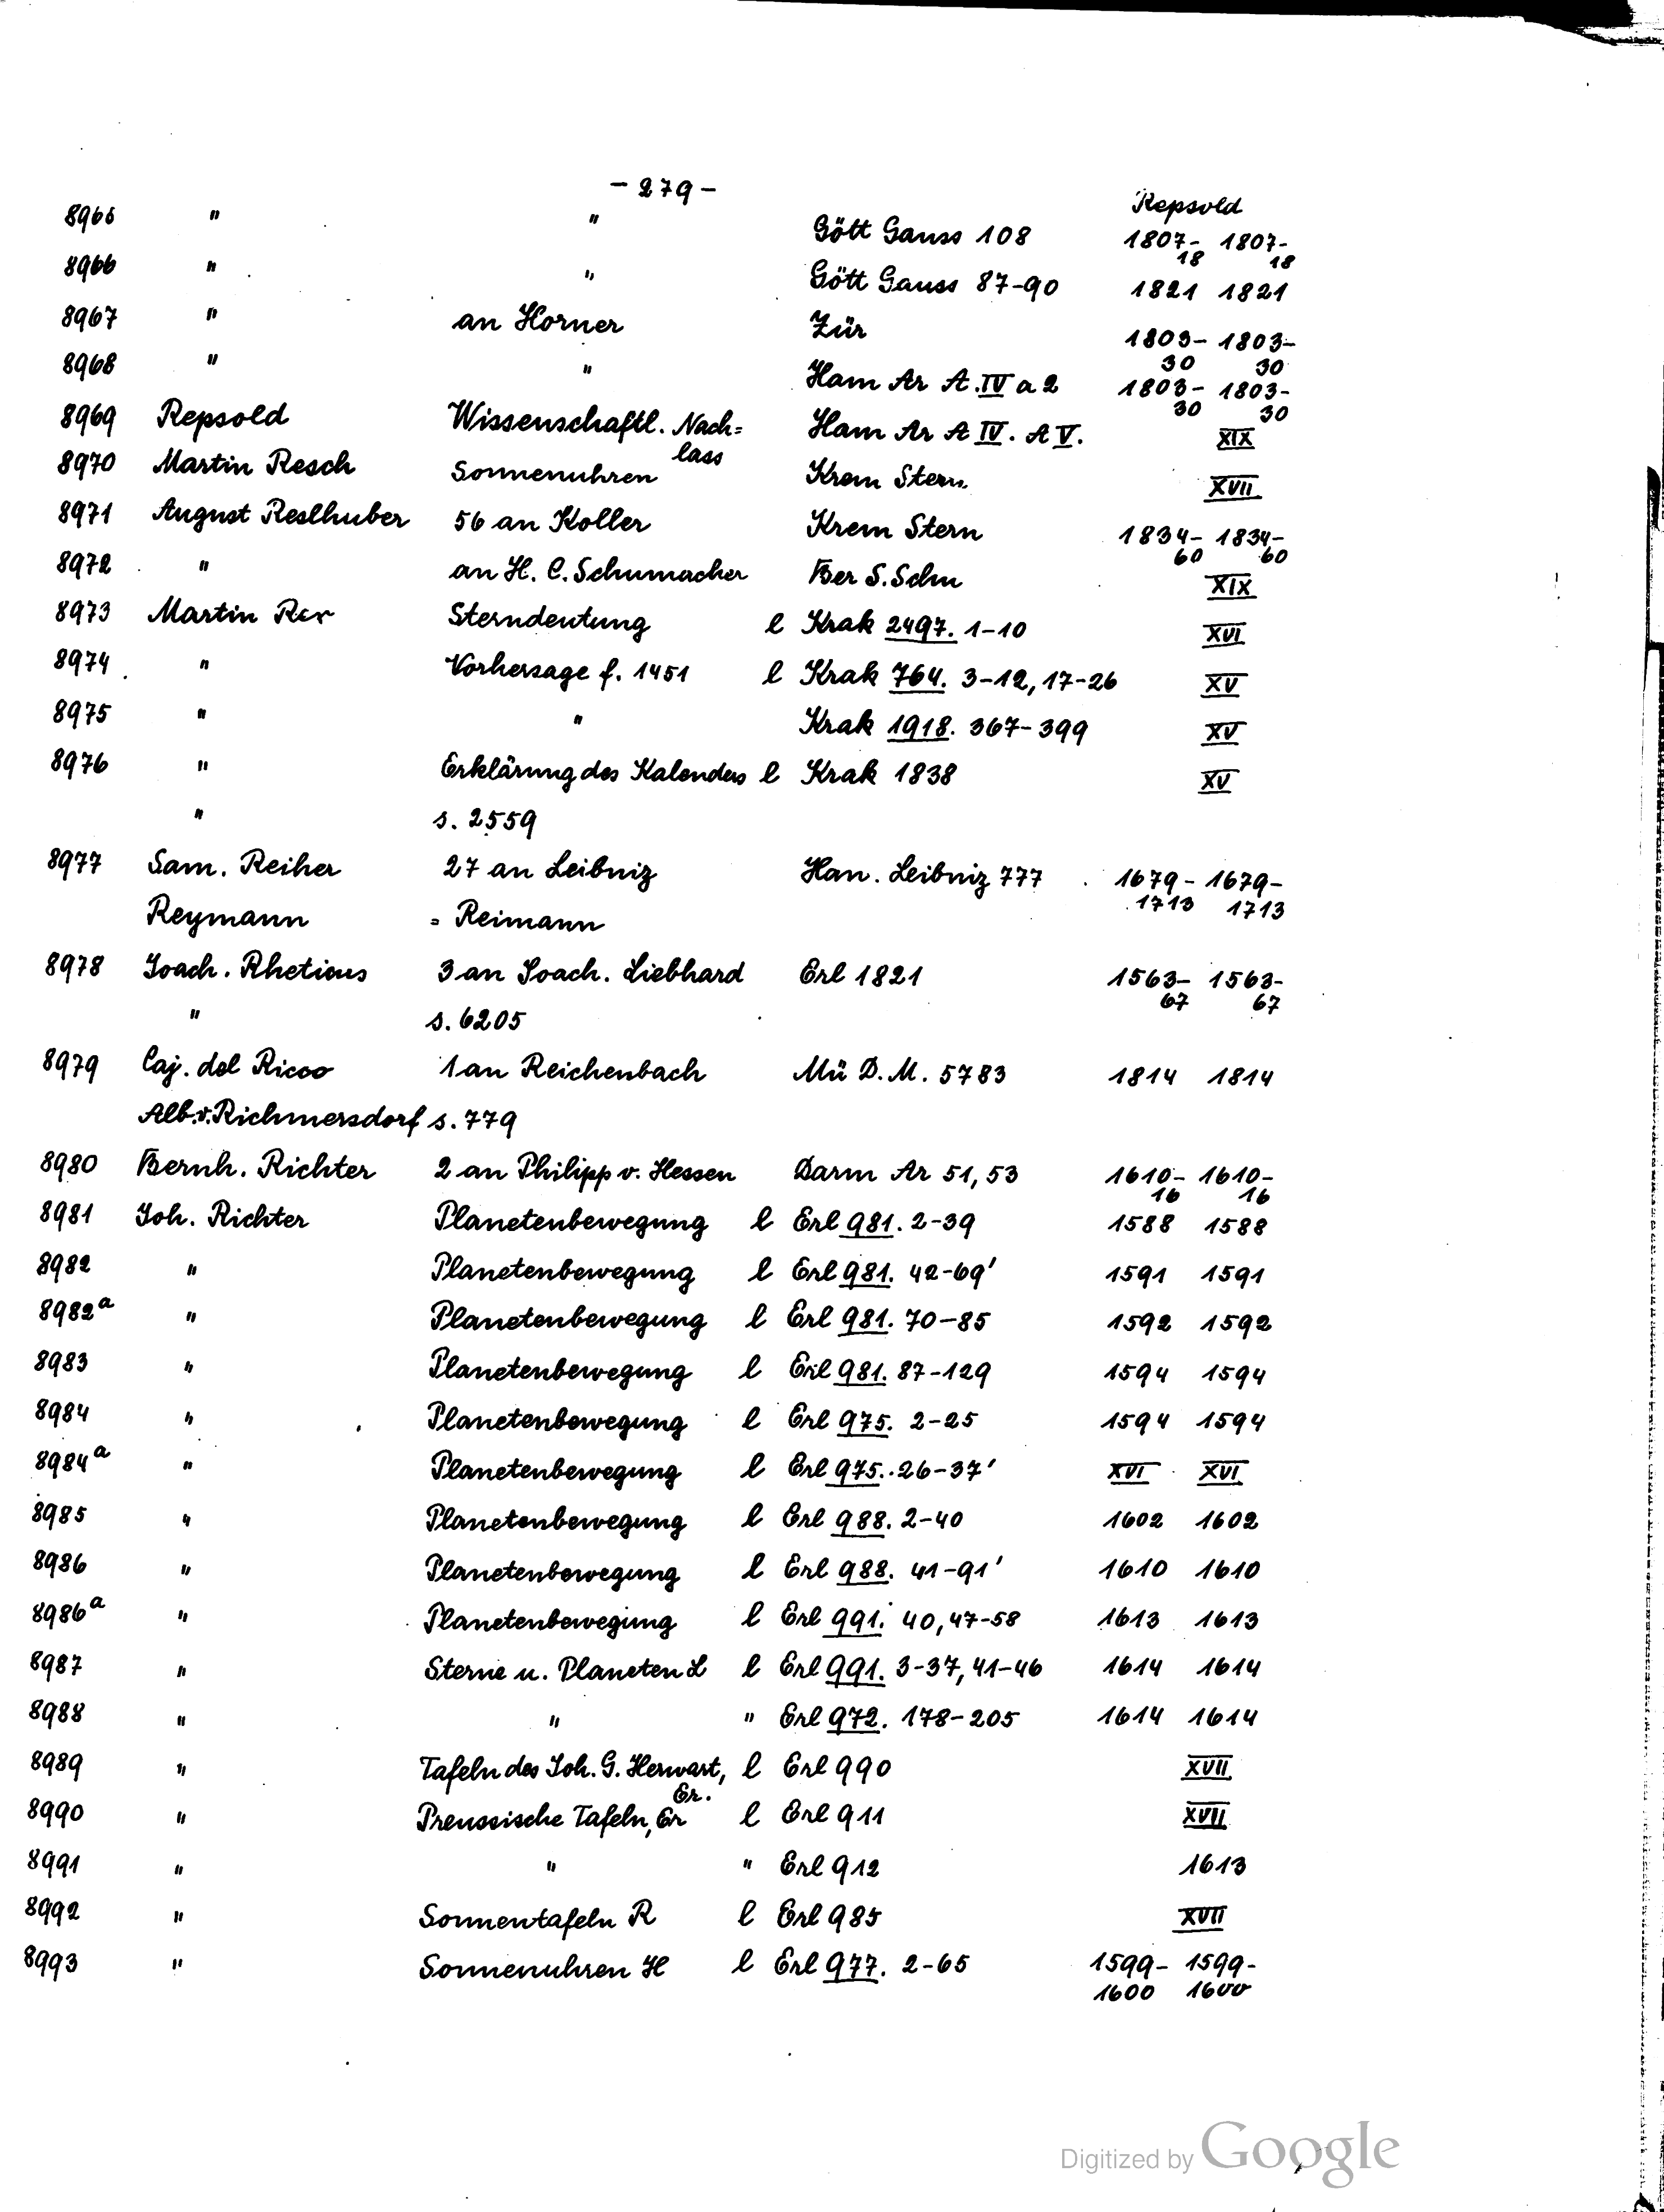 - 279 -
Repsold
8965 " " Gött Gauss 108 1807- 1807-
18 18
8966 " " Gött Gauss 87-90 1821 1821
8967 " an Horner Zür 1803- 1803-
30 30
8968 " " Ham Ar A.IV a 2 1803- 1803-
30 30
8969 Repsold Wissenschaftl. Nach= Ham Ar A IV. A V. XIX
lass
8970 Martin Resch Sonnenuhren Krem Stern XVII
8971 August Reslhuber 56 an Koller Krem Stern 1834- 1834-
60 60
8972 " an H. C. Schumacher Ber S. Schu XIX
8973 Martin Rex Sterndeutung l Krak 2497. 1-10 XVI
8974 " Vorhersage f. 1451 l Krak 764. 3-12, 17-26 XV
8975 " " Krak 1918. 367-399 XV
8976 " Erklärung des Kalenders l Krak 1838 XV
" s. 2559
8977 Sam. Reiher 27 an Leibniz Han. Leibniz 777 1679- 1679-
1713 1713
Reymann = Reimann
8978 Joach. Rheticus 3 an Joach. Liebhard Erl 1821 1563- 1563-
67 67
" s. 6205
8979 Caj. del Ricco 1 an Reichenbach Mü D. M. 5783 1814 1814
Alb. v. Richmersdorf s. 779
8980 Bernh. Richter 2 an Philipp v. Hessen Darm Ar 51, 53 1610- 1610-
16 16
8981 Joh. Richter Planetenbewegung l Erl 981. 2-39 1588 1588
8982 " Planetenbewegung l Erl 981. 42-69' 1591 1591
8982a " Planetenbewegung l Erl 981. 70-85 1592 1592
8983 " Planetenbewegung l Erl 981. 87-129 1594 1594
8984 " Planetenbewegung l Erl 975. 2-25 1594 1594
8984a " Planetenbewegung l Erl 975. 26-37' XVI XVI
8985 " Planetenbewegung l Erl 988. 2-40 1602 1602
8986 " Planetenbewegung l Erl 988. 41-91' 1610 1610
8986a " Planetenbewegung l Erl 991. 40, 47-58 1613 1613
8987 " Sterne u. Planeten L l Erl 991. 3-37, 41-46 1614 1614
8988 " " " Erl 972. 178-205 1614 1614
8989 " Tafeln des Joh. G. Herwart, l Erl 990 XVII
Er.
8990 " Preussische Tafeln, Er l Erl 911 XVII
8991 " " " Erl 912 1613
8992 " Sonnentafeln R l Erl 985 XVII
8993 " Sonnenuhren H l Erl 977. 2-65 1599- 1599-
1600 1600
Digitized by Google